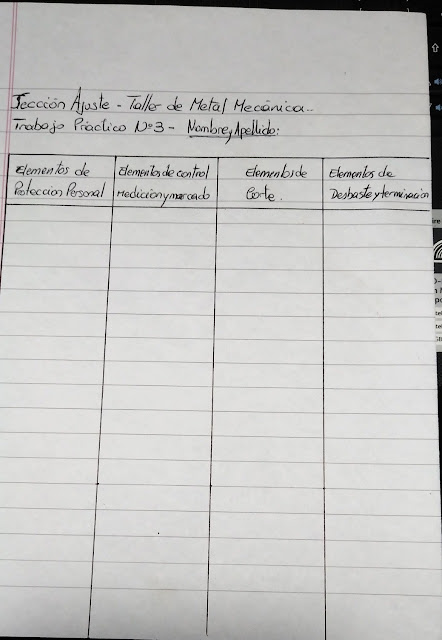 Sección Ajuste - Taller de Metal Mecánica..
Trabajo Práctico Nº3 - Nombre y Apellido:
Elementos de
Protección Personal
Elementos de control
Medición y marcado
Elementos de
Corte.
Elementos de
Desbaste y terminación